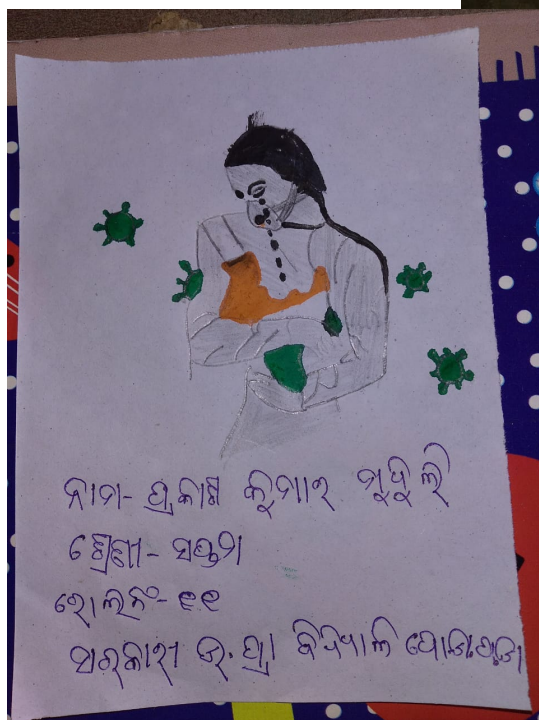 ନାମ- ପ୍ରକାଶ କୁମାର ମୁଦୁଲି
ଶ୍ରେଣୀ- ସପ୍ତମ
ରୋଲନଂ- ୧୧
ସରକାରୀ ଉ. ପ୍ରା ବିଦ୍ୟାଳି